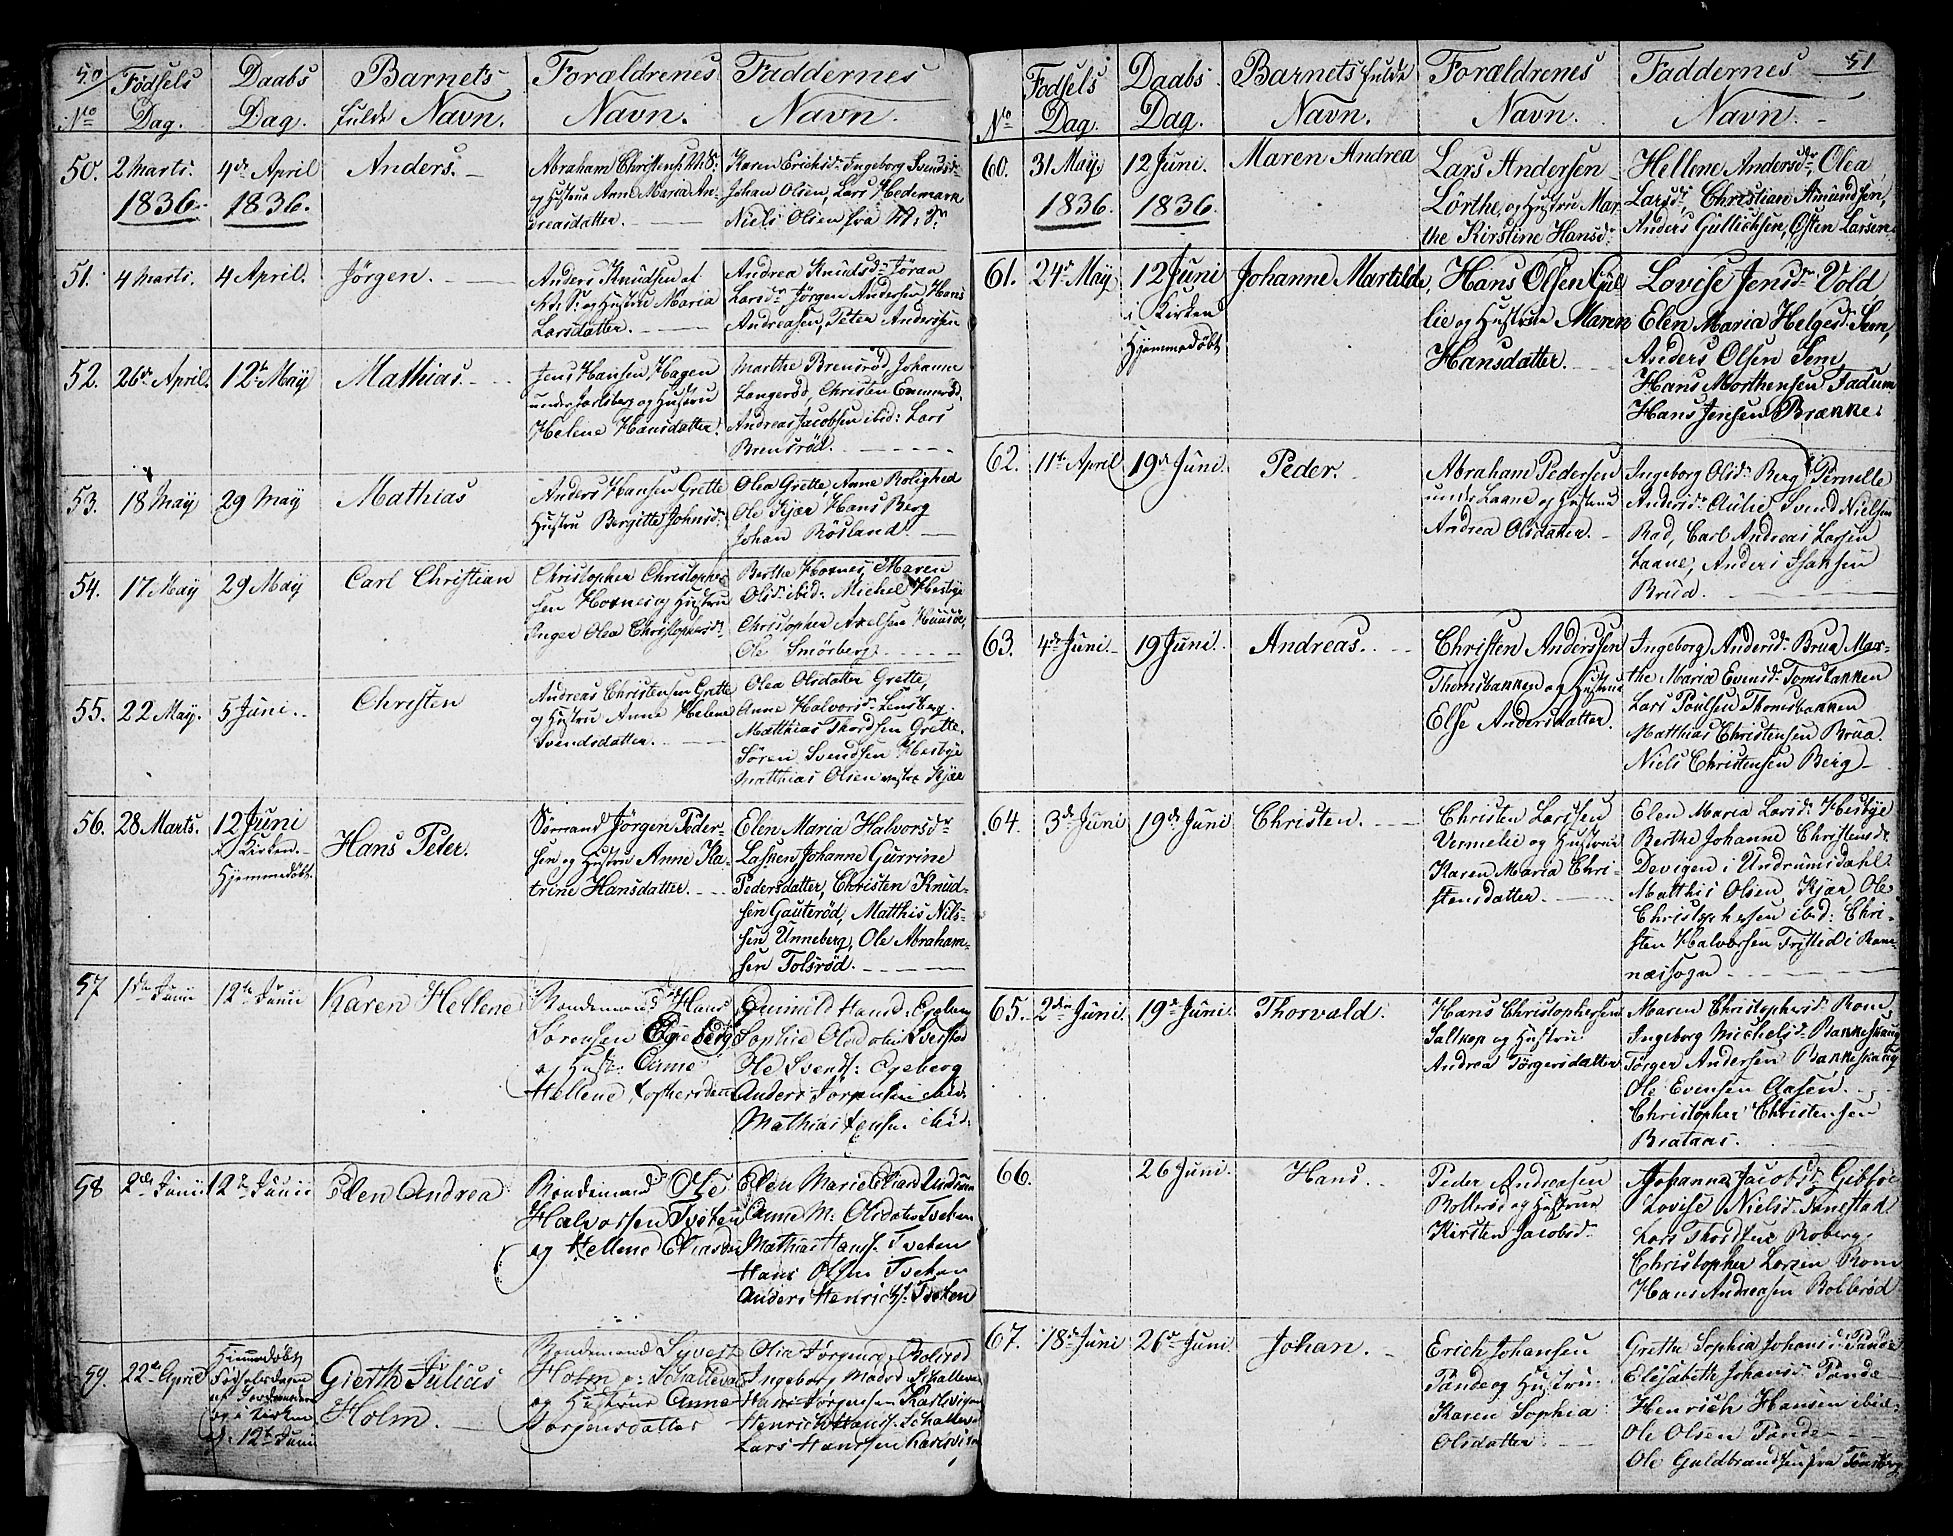 50
No
Fødsels
Dag.
Daabs
Dag.
Barnets
fulde Navn.
Forældrenes
Navn.
Faddernes
Navn.
50.
2 Marts.
1836.
4de April
1836.
Anders.
Abraham Christens:
og Hustru Anne Maria An-
dreasdatter.
Karen Ericksdr Ingeborg Svendsdr
Johan Olsen, Lars Hedemark
Niels Olsen fra
51.
4 Marts.
4 April.
Jørgen.
Anders Knudsen af
og Hustru Maria
Larsdatter.
Andrea Knudsdr Jøran
Larsdr Jørgen Andersen, Hans
Andreasen, Peter Anderssen
52.
26de April.
12te May
Mathias.
Jens Hansen, Hagen
under Jarlsberg og Hustru
Helene Hansdatter.
Marthe Brensrød, Johanne
Langerød, Christen
Andreas Jacobsen ibid: Lars
Brensrød.
53.
18 May
29 May
Mathias
Anders Hansen Grette
Hustru Bergitte Johnsd:
Olea Grette, Anne Rolighed
Ole Kjær, Hans Berg
Johan Røsland.
54.
17 May
29 May
Carl Christian
Christopher Christopher-
sen Horne og Hustru
Inger Olea Christophersd:
Berthe Hornes, Maren
Olsd: ibid: Michel Hesbye
Christopher Axelsen
Ole Smørberg.
55.
22 May.
5 Juni.
Christen
Andreas Christensen Grette
og Hustru Anne Helene
Svendsdatter.
Olea Olsdatter Grette,
Anne Halvorsdr Lensberg.
Matthias Thordsen Grette.
Søren Svendsen Hesbye
Matthias Olsen vestre Kjær
56.
28 Marts.
12 Juni
i Kirken.
Hjemmedøbt.
Hans Peter.
Sørmand Jørgen Peder-
sen og Hustru Anne Ka-
trine Hansdatter.
Elen Maria Halvorsdr
Lasken Johanne Gurrine
Pedersdatter, Christen Knud-
sen Gauterød, Matthis Nils-
sen Unneberg, Ole Abraham-
sen Tolsrød.
57
1ste Junii
12te Junii
Karen Hellene
Bondemand Hans
Sørensen Egeberg
og Hust: Anne
Hellene
Gunild Hansd: Egeberg
Sophie Olsdatter
Ole Svends: Egeberg
Anders Sørensen ibid.
Mathias Jensen ibid:
58
2den Junii
12te Junii
Elen Andrea
Bondemand Ole
Halvorsen Tveten
og Hellene
Elen Marie
Anne M: Olsdatter Tveten
Mathias Hanss: Tveten
Hans Olsen Tveten
Anders Henrichs: Tveten
59.
22de April
Hiemmedøbt
Fødselsdagen
af
og i Kirken
d: 12te Junii
Gierth Julius
Holm.
Bondemand Syvert
Holm
og Hustrue Anne
Jørgensdatter
Olia Jørgensd: Bolerød
Ingeborg Madsd:
Hans Jørgensen Karlsvigen
Henrich Hanss:
Lars Hanssen Karlsvigen
51
No
Fødsels
Dag.
Daabs
Dag.
Barnets fulde
Navn.
Forældrenes
Navn.
Faddernes
Navn.
60.
31 May.
1836.
12 Juni.
1836.
Maren Andrea
Lars Andersen
Lørthe, og Hustru Mar-
the Kirstine Hansd:
Hellene Andersdr, Olea
Larsd:, Christian Amundsen,
Anders Gullichsen, Østen Larsen
61.
24de May
12 Juni
i Kirken
Hjemmedøbt
Johanne Martilde,
Hans Olsen Gul-
lie og Hustrue Maren
Hansdatter.
Lovise Jensdr Vold
Elen Maria Helgesd: Sem,
Anders Olsen Sem,
Hans Morthensen, Fadum
Hans Jensen Brænne.
62.
11te April
19de Juni.
Peder.
Abraham Pedersen
under Laane og Hustrue
Andrea Olsdatter.
Ingeborg Olsdr Berg, Pernille
Andersdr Aulie, Svend Nielsen
Rod, Carl Andreas Larsen
Laane, Anders Isaksen
Brua.
63.
4de Juni.
19 Juni.
Andreas.
Christen Anderssen
Thomsbakken og Hustrue
Else Andersdatter.
Ingeborg Andersdr Brua, Mar-
the Maria Evensdr Tomsbakken
Lars Poulsen Thomsbakken
Matthias Christensen Brua.
Niels Christensen Berg
64.
3de Juni
19de Juni
Christen.
Christen Larssen
Vermelie og Hustrue
Karen Maria Chri-
stensdatter.
Elen Maria Larsdr Hesbye
Berthe Johanne Christensdr
Devigen i Undrumsdahl
Matthis Olsen Kjær, Ole
Christophersen ibid: Chri-
sten Halvorsen Fristed i Ram-
næssogn
65.
2den Juni.
19de Juni.
Thorvald.
Hans Christophersen
Saltkop og Hustru
Andrea Tørgersdatter
Maren Christophersdr Rom,
Ingeborg Michelsdr Bakkeskaug
Tørger Andersen Bakkeskaug
Ole Evensen Aasen.
Christopher Christensen
Brataas.
66.
26 Juni.
Hans.
Peder Andreasen
Bollerød og Hustrue
Kirsten Jacobsd:
Johanne Jacobsdr Gibsøe
Lovise Nielsdr Fanestad
Lars Thordsen Roberg.
Christopher Larsen Rom
Hans Andreasen Bollerød
67.
18de Juni
26de Juni.
Johan.
Erich Johansen
Pande og Hustru
Karen Sophia
Olsdatter.
Grethe Sophia Johansdr Pande
Elisabeth Johansdr Pande
Henrich Hansen ibid:
Ole Olsen Pande
Ole Guldbrandsen fra Tønsberg